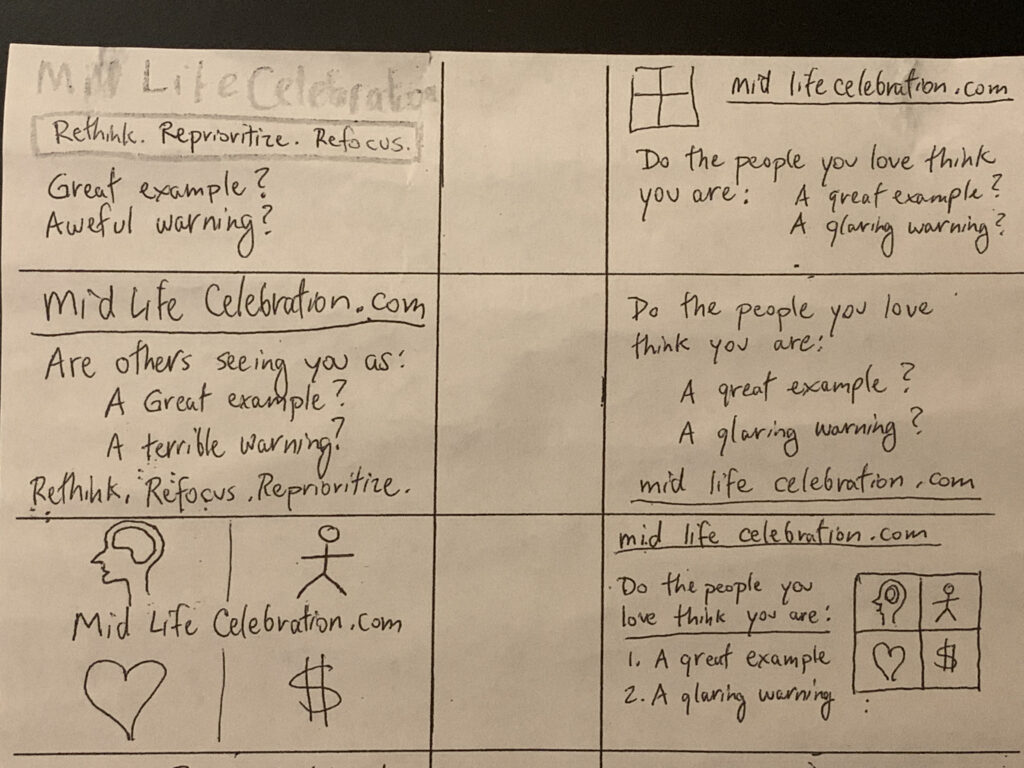 Mid Life Celebration
Rethink. Reprioritize. Refocus.
Great example?
Aweful warning?
mid life celebration.com
Do the people you love think
you are: A great example?
A glaring warning?
Mid Life Celebration.com
Are others seeing you as:
A Great example?
A terrible warning?
Rethink. Refocus. Reprioritize.
Do the people you love
think you are:
A great example?
A glaring warning?
mid life celebration.com
Mid Life Celebration.com
$
mid life celebration.com
Do the people you
love think you are:
1. A great example
2. A glaring warning
$